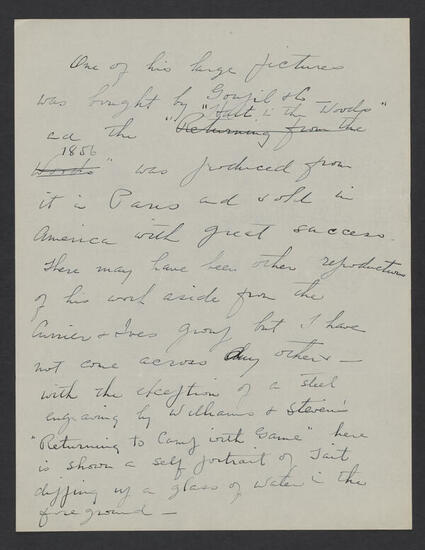 One of his large pictures
was bought by Goupil & Co
"Halt in the Woods"
and the "Returning from the
1856
Works" was produced from
it in Paris and sold in
America with great success.
There may have been other reproductions
of his work aside from the
Currier & Ives group but I have
not come across any others —
with the exception of a steel
engraving by Williams & Steven's
"Returning to Camp with Game" here
is shown a self portrait of Tait
dipping up a glass of water in the
foreground —